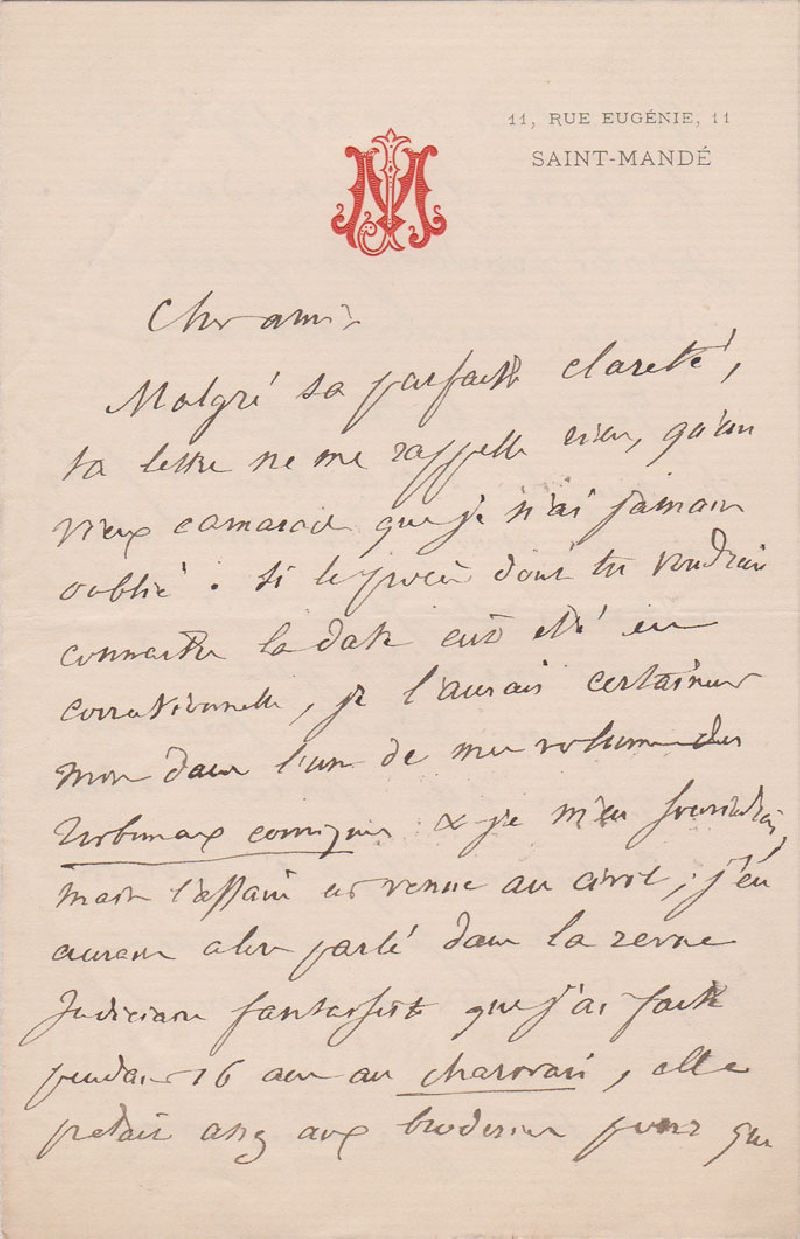 11, RUE EUGÉNIE, 11
SAINT-MANDÉ
JM
Cher ami,
Malgré sa parfaite clareté,
ta lettre ne me rappelle rien, qu'un
vieux camarade que je n'ai jamais
oublié. Si le procès dont tu voudrais
connaître la date eût été en
correctionnelle, je l'aurais certainement
mis dans l'un de mes volumes des
Tribunaux comiques & je m'en souviendrais,
mais l'affaire est venue au civil ; j'en
aurais alors parlé dans la revue
Judiciaire fantaisiste que j'ai faite
pendant 16 ans au charivari, elle
prêtait assez aux broderies pour que